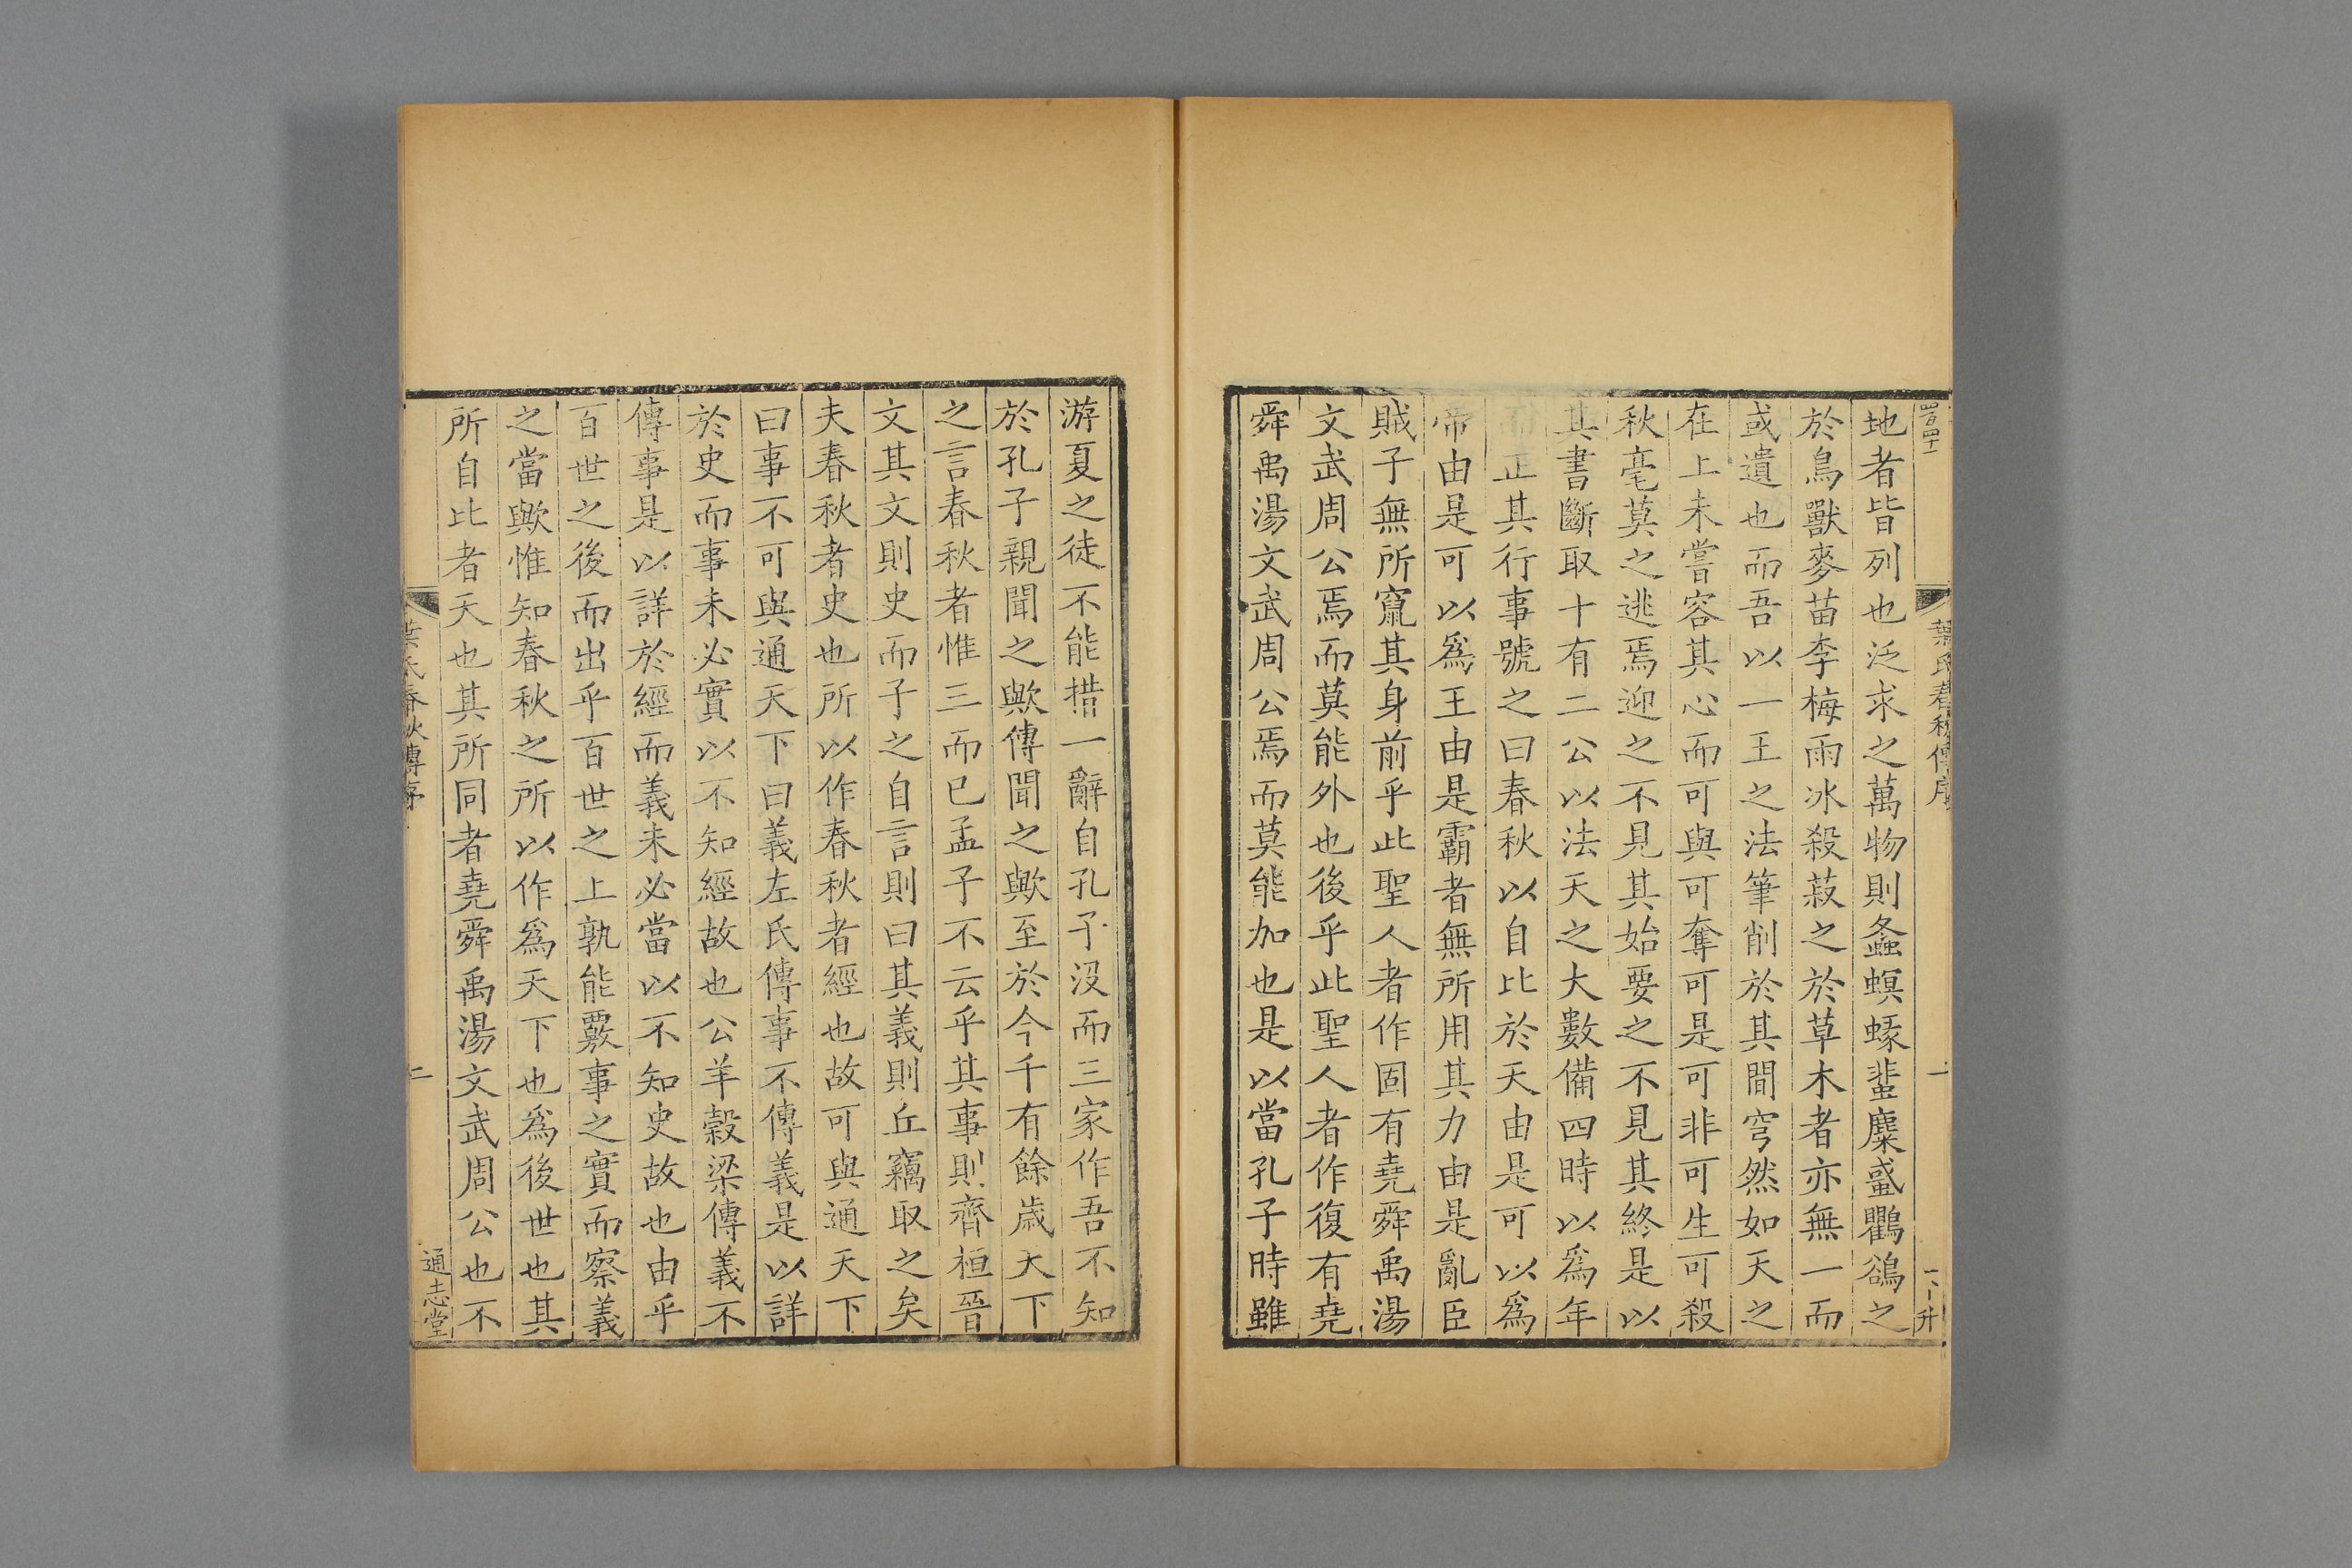 葉氏春秋傳序
一
地者皆列也泛求之萬物則螽螟蝝蜚麋蜮鸜鵒之
於鳥獸麥苗李梅雨冰殺菽之於草木者亦無一而
或遺也而吾以一王之法筆削於其間穹然如天之
在上未嘗容其心而可與可奪可是可非可生可殺
秋毫莫之逃焉迎之不見其始要之不見其終是以
其書斷取十有二公以法天之大數備四時以爲年
而正其行事號之曰春秋以自比於天由是可以爲
帝由是可以爲王由是霸者無所用其力由是亂臣
賊子無所竄其身前乎此聖人者作固有堯舜禹湯
文武周公焉而莫能外也後乎此聖人者作復有堯
舜禹湯文武周公焉而莫能加也是以當孔子時雖
游夏之徒不能措一辭自孔子沒而三家作吾不知
於孔子親聞之歟傳聞之歟至於今千有餘歲天下
之言春秋者惟三而已孟子不云乎其事則齊桓晉
文其文則史而子之自言則曰其義則丘竊取之矣
夫春秋者史也所以作春秋者經也故可與通天下
曰事不可與通天下曰義左氏傳事不傳義是以詳
於史而事未必實以不知經故也公羊穀梁傳義不
傳事是以詳於經而義未必當以不知史故也由乎
百世之後而出乎百世之上孰能覈事之實而察義
之當歟惟知春秋之所以作爲天下也爲後世也其
所自比者天也其所同者堯舜禹湯文武周公也不
葉氏春秋傳序
二
通志堂